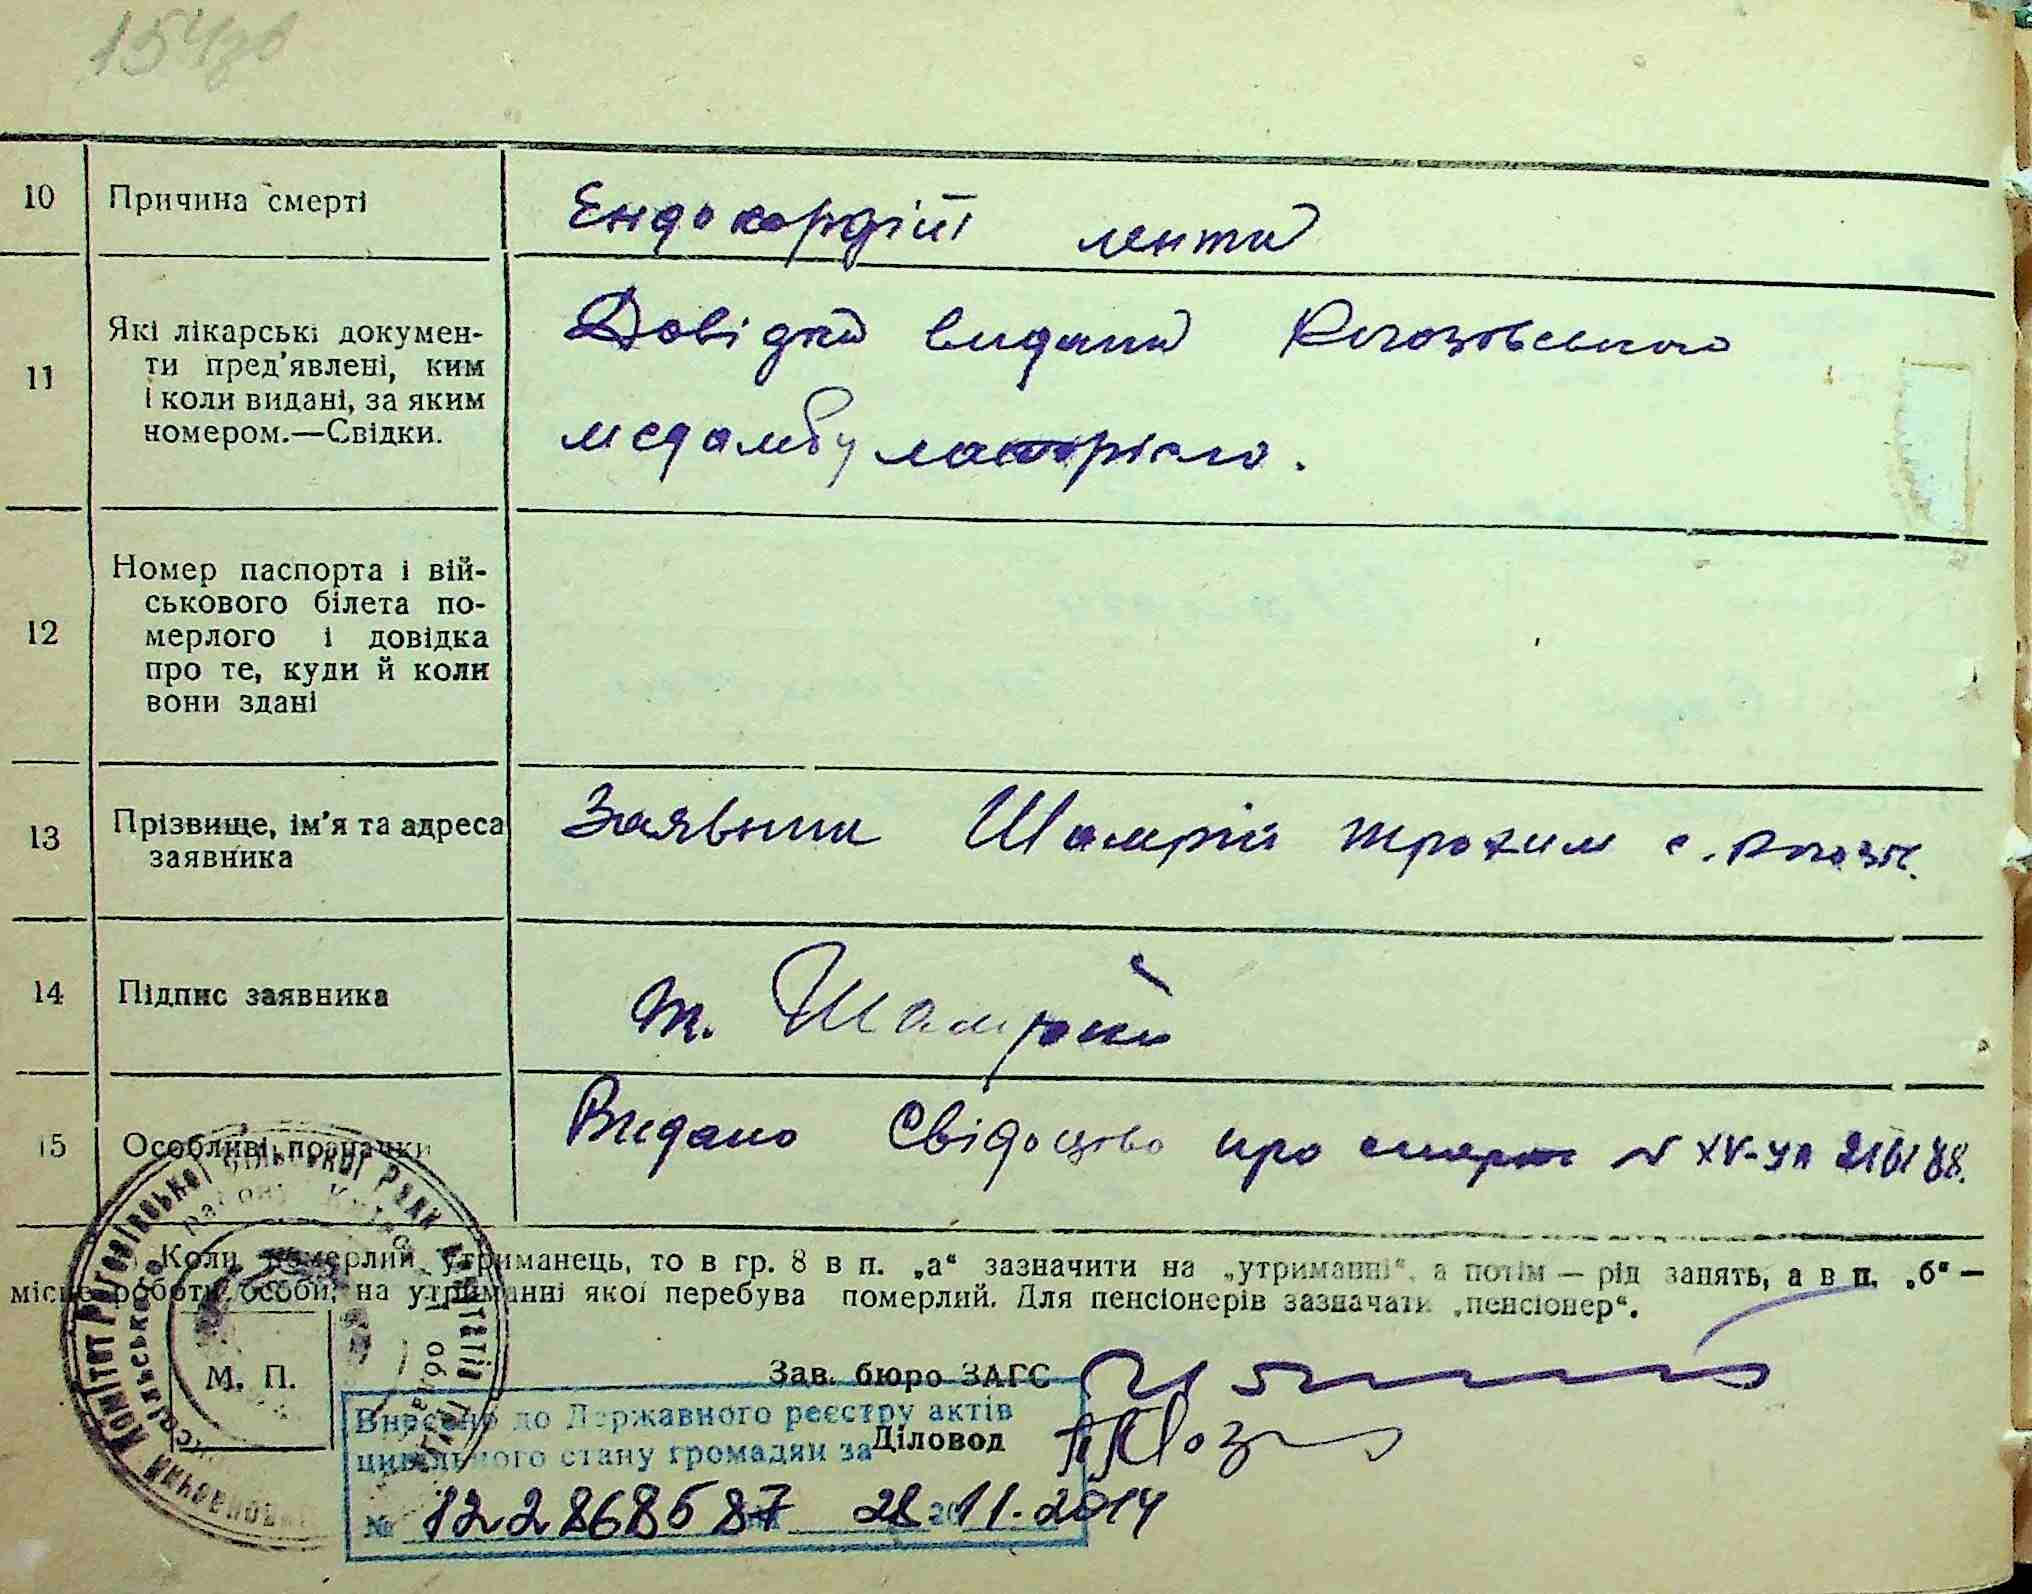 154зв
10 Причина смерті Ендокардіт лента
11 Які лікарські докумен-
ти пред’явлені, ким
і коли видані, за яким
номером.—Свідки.
Довідка видана Рогозовською
медамбулаторією.
12 Номер паспорта і вій-
ськового білета по-
мерлого і довідка
про те, куди й коли
вони здані
13 Прізвище, ім’я та адреса
заявника
Заявник Шамрай Трохим с. Рогозів.
14 Підпис заявника Т. Шамрай
15 Особливі позначки Видано Свідоцтво про смерть N XV-УЛ
Коли померлий утриманець, то в гр. 8 в п. „а“ зазначити на „утриманні“, а потім — рід занять, а в п. „б“ —
місце роботи особи, на утриманні якої перебува померлий. Для пенсіонерів зазначати „пенсіонер“.
М. П.
Зав. бюро ЗАГС
Діловод
Внесено до Державного реєстру актів
цивільного стану громадян за
№ 28.11.2014